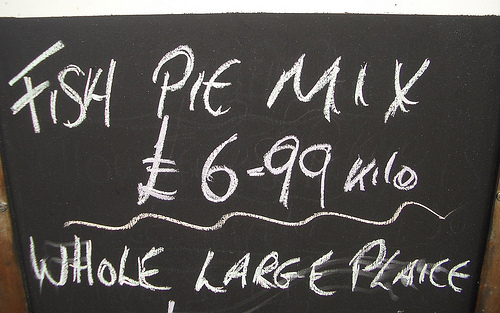 FISH PIE MIX
£6-99 KILO
WHOLE LARGE PLAICE